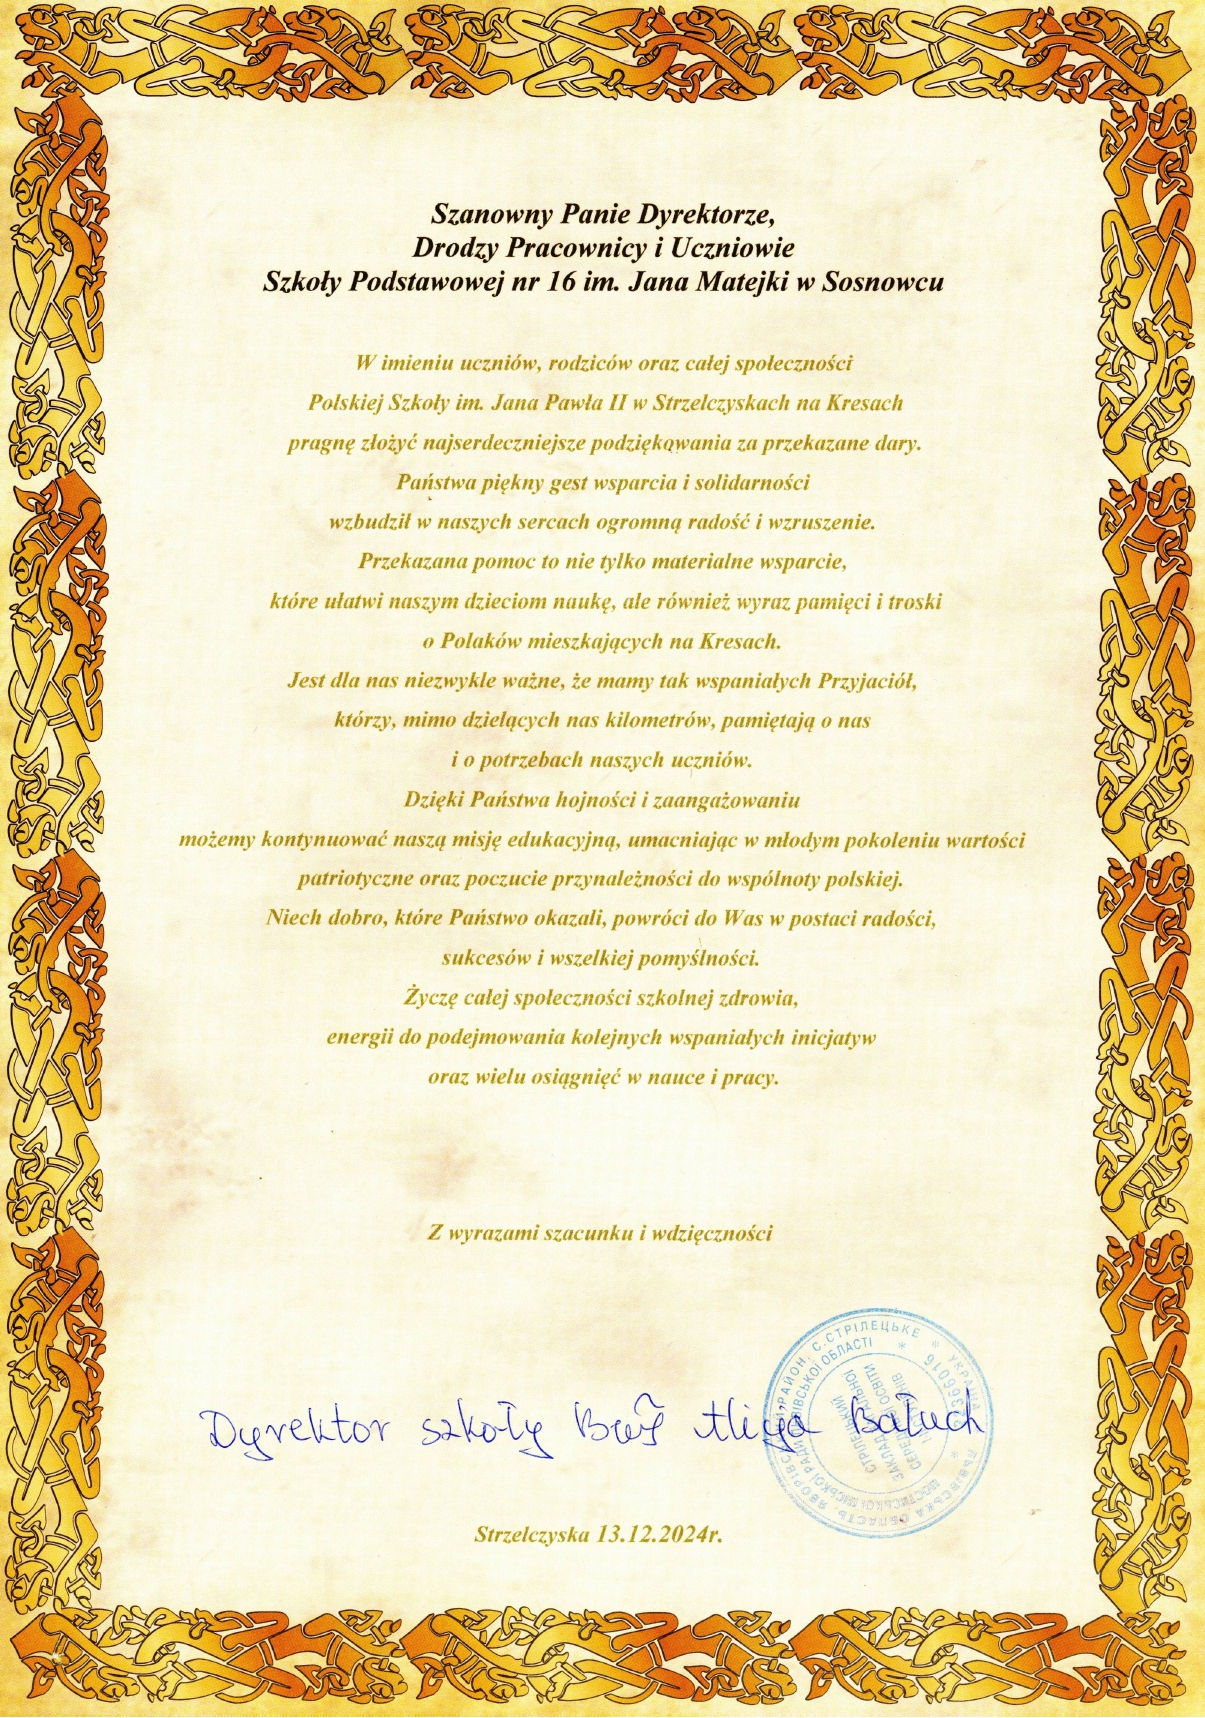 Szanowny Panie Dyrektorze,
Drodzy Pracownicy i Uczniowie
Szkoły Podstawowej nr 16 im. Jana Matejki w Sosnowcu
W imieniu uczniów, rodziców oraz całej społeczności
Polskiej Szkoły im. Jana Pawła II w Strzelczyskach na Kresach
pragnę złożyć najserdeczniejsze podziękowania za przekazane dary.
Państwa piękny gest wsparcia i solidarności
wzbudził w naszych sercach ogromną radość i wzruszenie.
Przekazana pomoc to nie tylko materialne wsparcie,
które ułatwi naszym dzieciom naukę, ale również wyraz pamięci i troski
o Polaków mieszkających na Kresach.
Jest dla nas niezwykle ważne, że mamy tak wspaniałych Przyjaciół,
którzy, mimo dzielących nas kilometrów, pamiętają o nas
i o potrzebach naszych uczniów.
Dzięki Państwa hojności i zaangażowaniu
możemy kontynuować naszą misję edukacyjną, umacniając w młodym pokoleniu wartości
patriotyczne oraz poczucie przynależności do wspólnoty polskiej.
Niech dobro, które Państwo okazali, powróci do Was w postaci radości,
sukcesów i wszelkiej pomyślności.
Życzę całej społeczności szkolnej zdrowia,
energii do podejmowania kolejnych wspaniałych inicjatyw
oraz wielu osiągnięć w nauce i pracy.
Z wyrazami szacunku i wdzięczności
Dyrektor szkoły
РАЙОН, С.СТРІЛЕЦЬКЕ
ЛЬВІВСЬКА ОБЛАСТЬ
Strzelczyska 13.12.2024r.